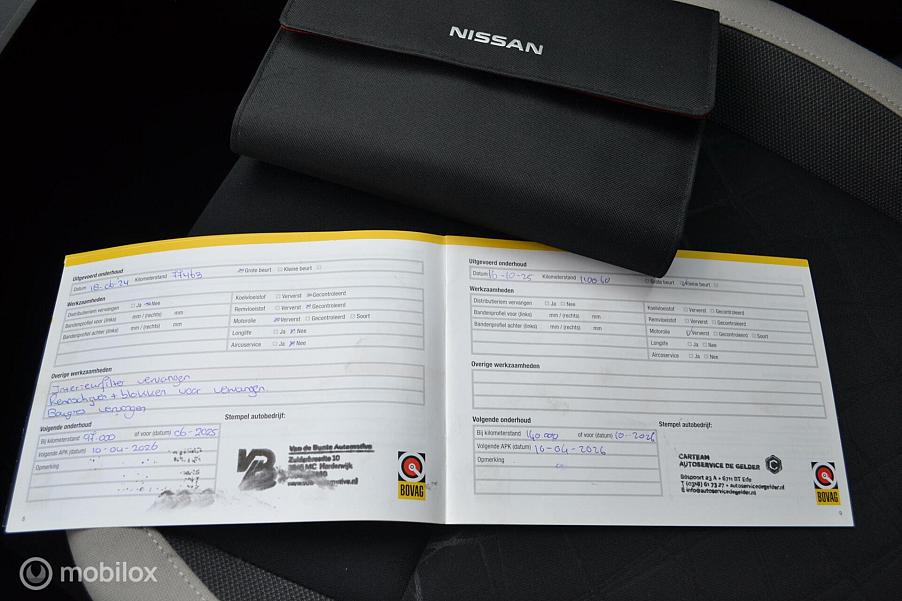 NISSAN
Uitgevoerd onderhoud
Datum 18-06-24 Kilometerstand 77463 Grote beurt Kleine beurt
Werkzaamheden
Distributieriem vervangen Ja Nee
Bandenprofiel voor (links) mm / (rechts) mm
Bandenprofiel achter (links) mm / (rechts) mm
Koelvloeistof Ververst Gecontroleerd
Remvloeistof Ververst Gecontroleerd
Motorolie Ververst Gecontroleerd Soort
Longlife Ja Nee
Aircoservice Ja Nee
Overige werkzaamheden
Interieurfilter vervangen
Remschijven + blokken voor vervangen
vervangen
Volgende onderhoud
Bij kilometerstand 97.000 of voor (datum) 06-2025
Volgende APK (datum) 10-04-2026
Opmerking
Stempel autobedrijf:
VB
Van de Bunte Automotive
MC Harderwijk
BOVAG
8
Uitgevoerd onderhoud
Datum 16-10-25 Kilometerstand Grote beurt Kleine beurt
Werkzaamheden
Distributieriem vervangen Ja Nee
Bandenprofiel voor (links) mm / (rechts) mm
Bandenprofiel achter (links) mm / (rechts) mm
Koelvloeistof Ververst Gecontroleerd
Remvloeistof Ververst Gecontroleerd
Motorolie Ververst Gecontroleerd Soort
Longlife Ja Nee
Aircoservice Ja Nee
Overige werkzaamheden
Volgende onderhoud
Bij kilometerstand 140.000 of voor (datum) 10-2026
Volgende APK (datum) 10-04-2026
Opmerking
Stempel autobedrijf:
CARTEAM
AUTOSERVICE DE GELDER
Bospoort 23 A • 6711 BT Ede
T (0318) 61 73 27 • autoservicedegelder.nl
E info@autoservicedegelder.nl
BOVAG
9
mobilox